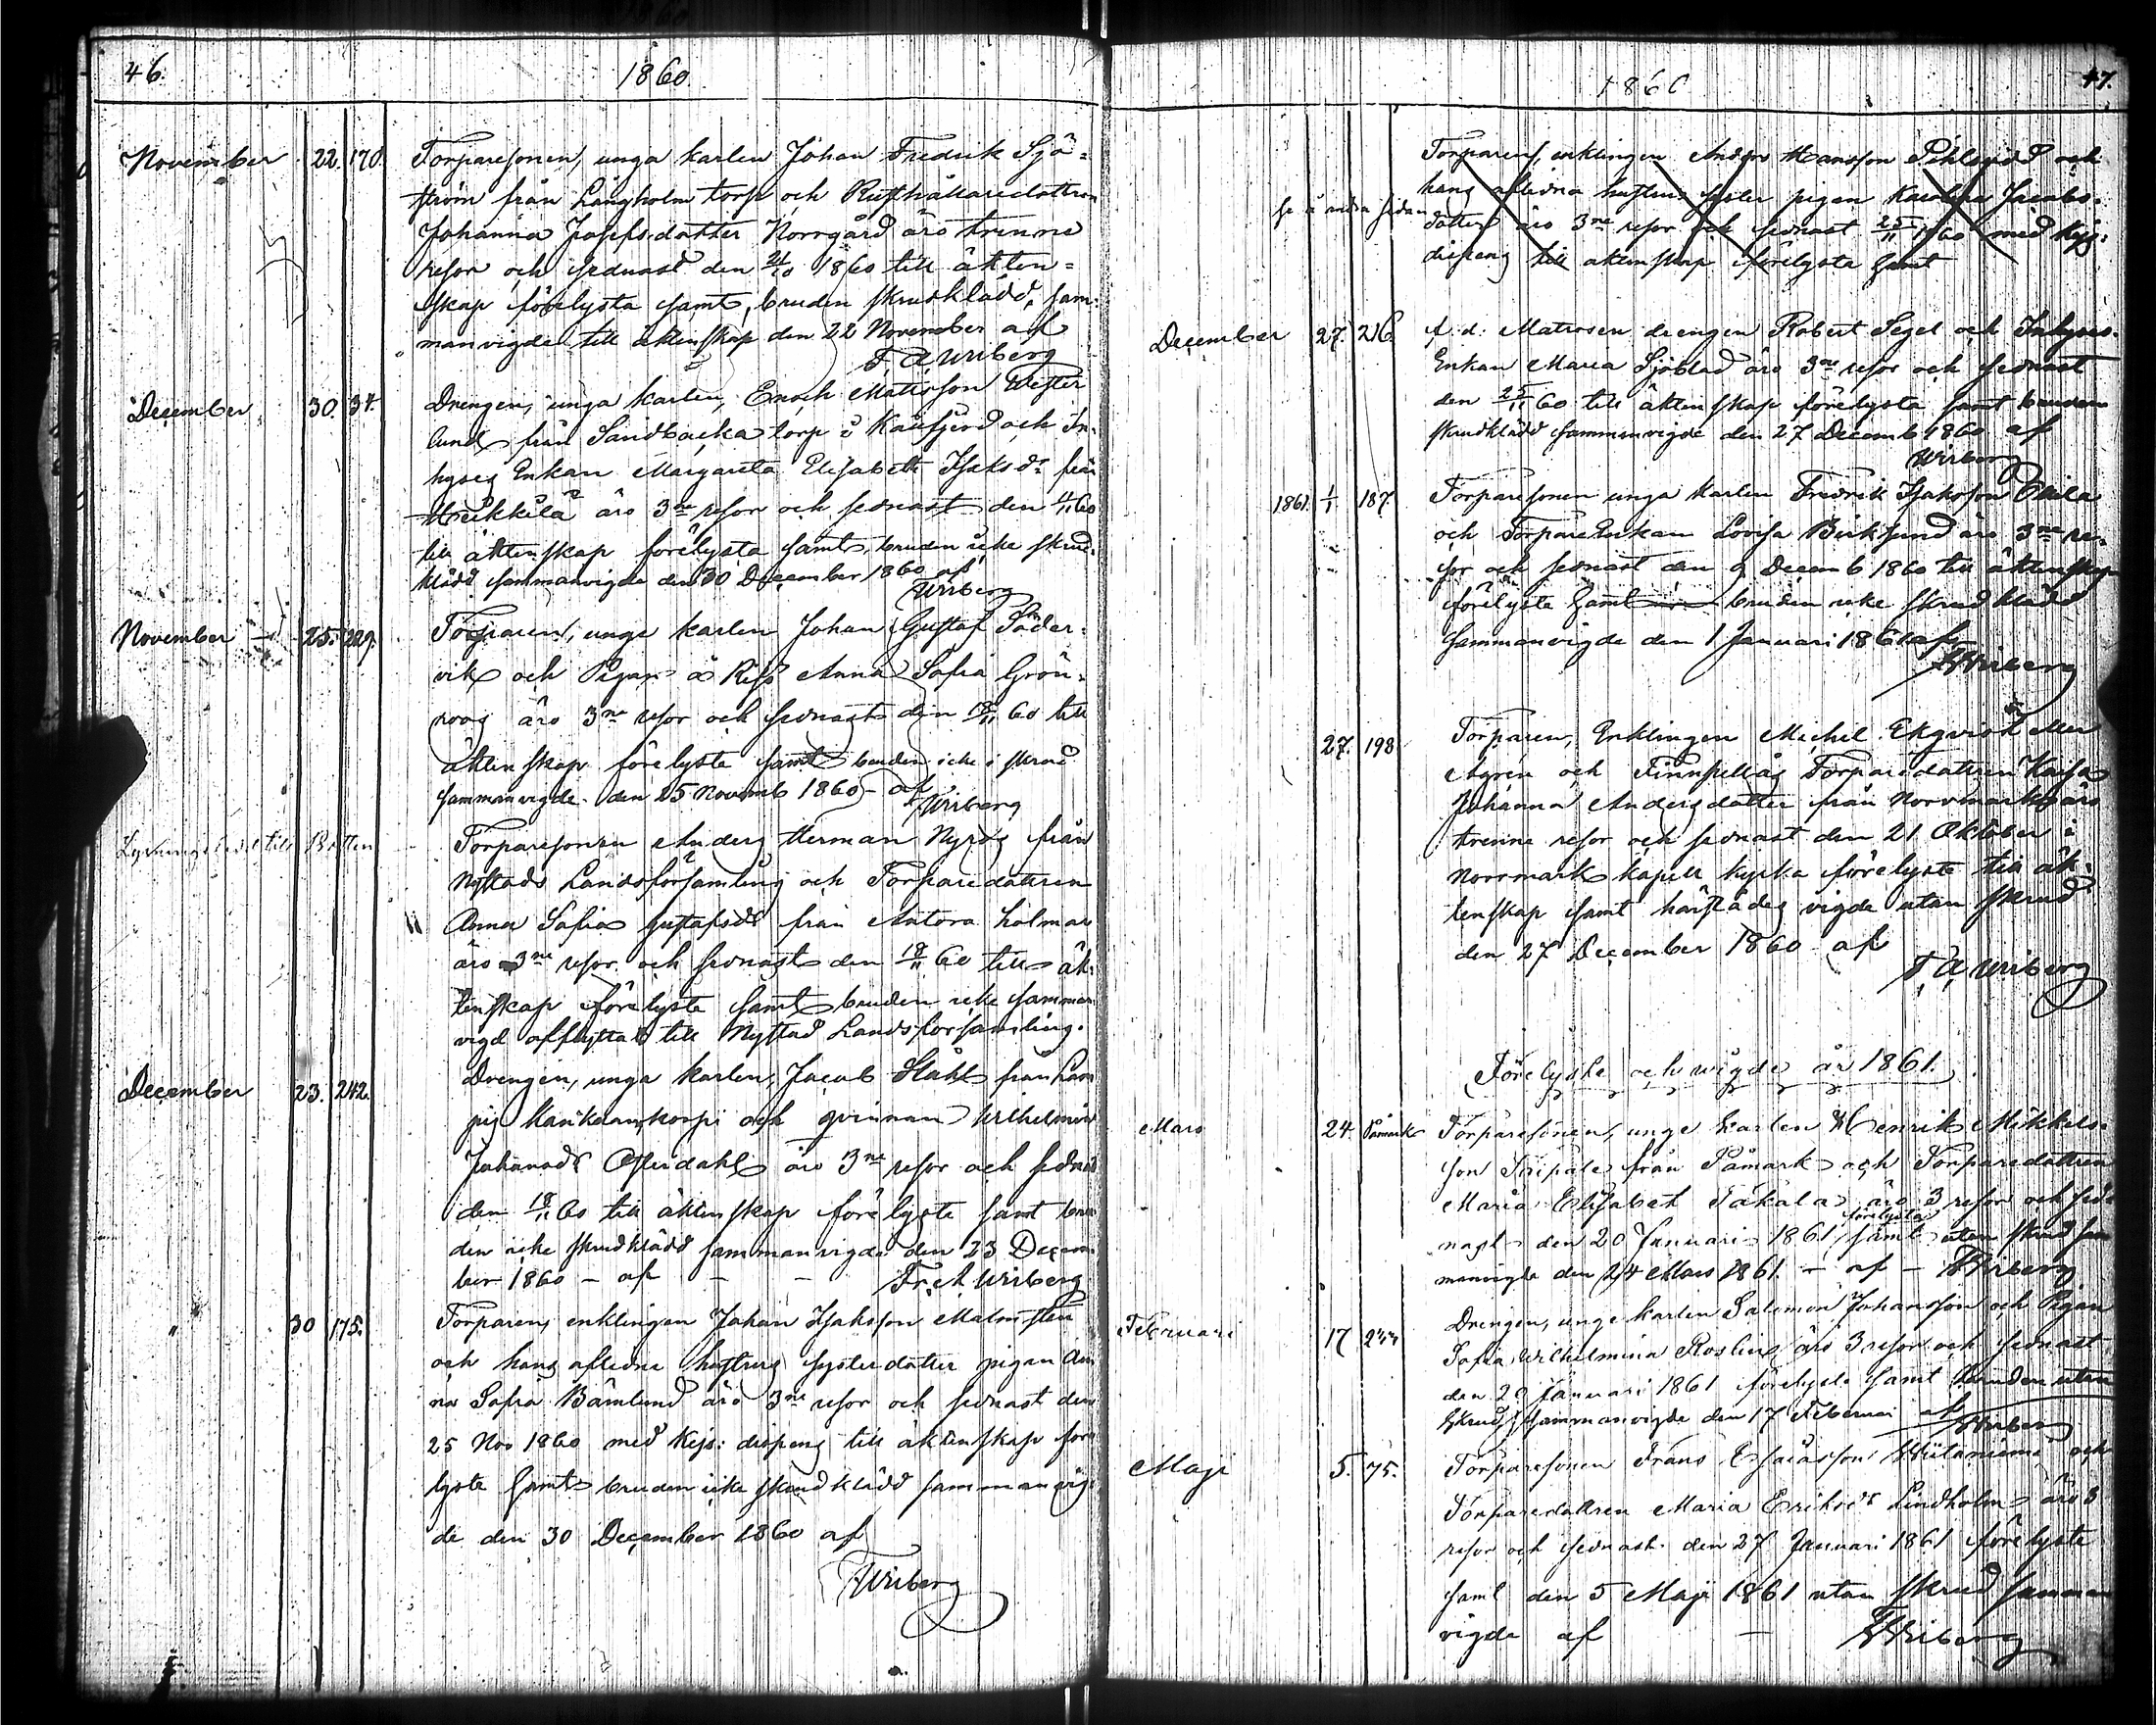 46.
1860.
November 22. 170. Torparesonen, unga karlen Johan Fredrik Sjö=
ström från Långholm torp och Rusthållaredottren
Johanna Josefsdotter Norrgård äro trenne
resor och sednast den 21/10 1860 till äkten=
skap förelysta samt, bruden skrudklädd, sam=
manvigde till äktenskap den 22 November af
F. A. Wriberg
December 30. 34. Drengen, unga karlen, Enoch Matsson Wester
lund från Sandbacka torp i Kåsfjerd och In=
hyses Enkan Margareta Elisabeth Isaksdr från
Heikkilä äro 3ne resor och sednast den 4/11 60
till äktenskap förelysta samt, bruden icke skrud=
klädd sammanvigde den 30 December 1860 af
Wriberg
November 25. 229. Torparen, unge karlen Johan Gustaf Söder=
vik och Pigan Anna Sofia Grön=
roos äro 3ne resor och sednast den 18/11 60 till
äktenskap förelyste samt bruden icke i skrud
sammanvigde den 25 Novemb 1860 - af
Wriberg
Lysningsbevis till Torparesonen Anders Herman Nyroos från
Nystads Landsförsamling och Torparedottren
Anna Sofia Gustafsdr från Antora holmar
äro 3ne resor och sednast den 18/11 60 till äk=
tenskap förelyste samt bruden icke samman
vigd afflyttat till Nystad Landsförsamling.
December 23. 242. Drengen, unga karlen, Jacob Ståhl från Lam
pis och qvinnan Wilhelmina
Johansdr Osterdahl äro 3ne resor och sednast
den 18/11 60 till äktenskap förelyste samt bru
den icke skrudklädd sammanvigde den 23 Decem
ber 1860 - af - - Fr. A. Wriberg
" 30 175. Torparen, enklingen Johan Isaksson Malmsten
och hans aflidne hustrus systerdotter pigan An
na Sofia Bämlund äro 3ne resor och sednast den
25 Nov 1860 med Kejs: dispens till äktenskap före
lyste samt bruden icke skrudklädd sammanvig
de den 30 December 1860 af
Wriberg
1860
47.
Torparen, enklingen Anders Hansson Pihlsudd och
hans aflidna hustrus syster pigan Karolina Jacobs=
se å andra sidan dotter äro 3ne resor och sednast 25/11 1860 med Kejs:
dispens till äktenskap förelysta samt
December 27. 216. f. d. Matrosen drengen Robert Segel och Inhyses
Enkan Maria Sjöblad äro 3ne resor och sednast
den 25/11 60 till äktenskap förelysta samt bruden
skrudklädd sammanvigde den 27 Decemb 1860 af
Wriberg
1861. 1/1 187. Torparesonen unga karlen Fredrik Isaksson
och Torpare Enkan Lovisa Björksund äro 3ne re=
sor och sednast den 9 Decemb 1860 till äktenskap
förelyste samt bruden icke skrudklädd
sammanvigde den 1 Januari 1861 af
Wriberg
27. 198 Torparen, Enklingen Michel Ekqvist eller
Nygren och Torparedottren Kaisa
Johanna Andersdotter från Norrmark äro
trenne resor och sednast den 21 Oktober i
Norrmark kapell kyrka förelyste till äk=
tenskap samt härstädes vigde utan skrud
den 27 December 1860 af
F. A. Wriberg
Förelyste och wigde år 1861.
Mars 24. Påmark Torparesonen, unge karlen Henrik Mikkels=
son från Påmark och Torparedottren
Maria Elisabeth Takala äro 3 resor och sed=
nast den 20 Januari 1861 förelysta samt utan skrud sam
manvigde den 24 Mars 1861. - af - Wriberg
Februari 17 Drengen, unge karlen Salomon Johansson och Pigan
Sofia Wilhelmina Roslin äro 3 resor och sednast
den 20 Januari 1861 förelyste samt bruden utan
skrud, sammanvigde den 17 Februari af
Wriberg
Maji 5. 75. Torparesonen Frans Esaiasson och
Torparedottren Maria Eriksdr Lindholm äro 3
resor och sednast den 27 Januari 1861 förelyste
samt den 5 Maji 1861 utan skrud samman
vigde af - Wriberg